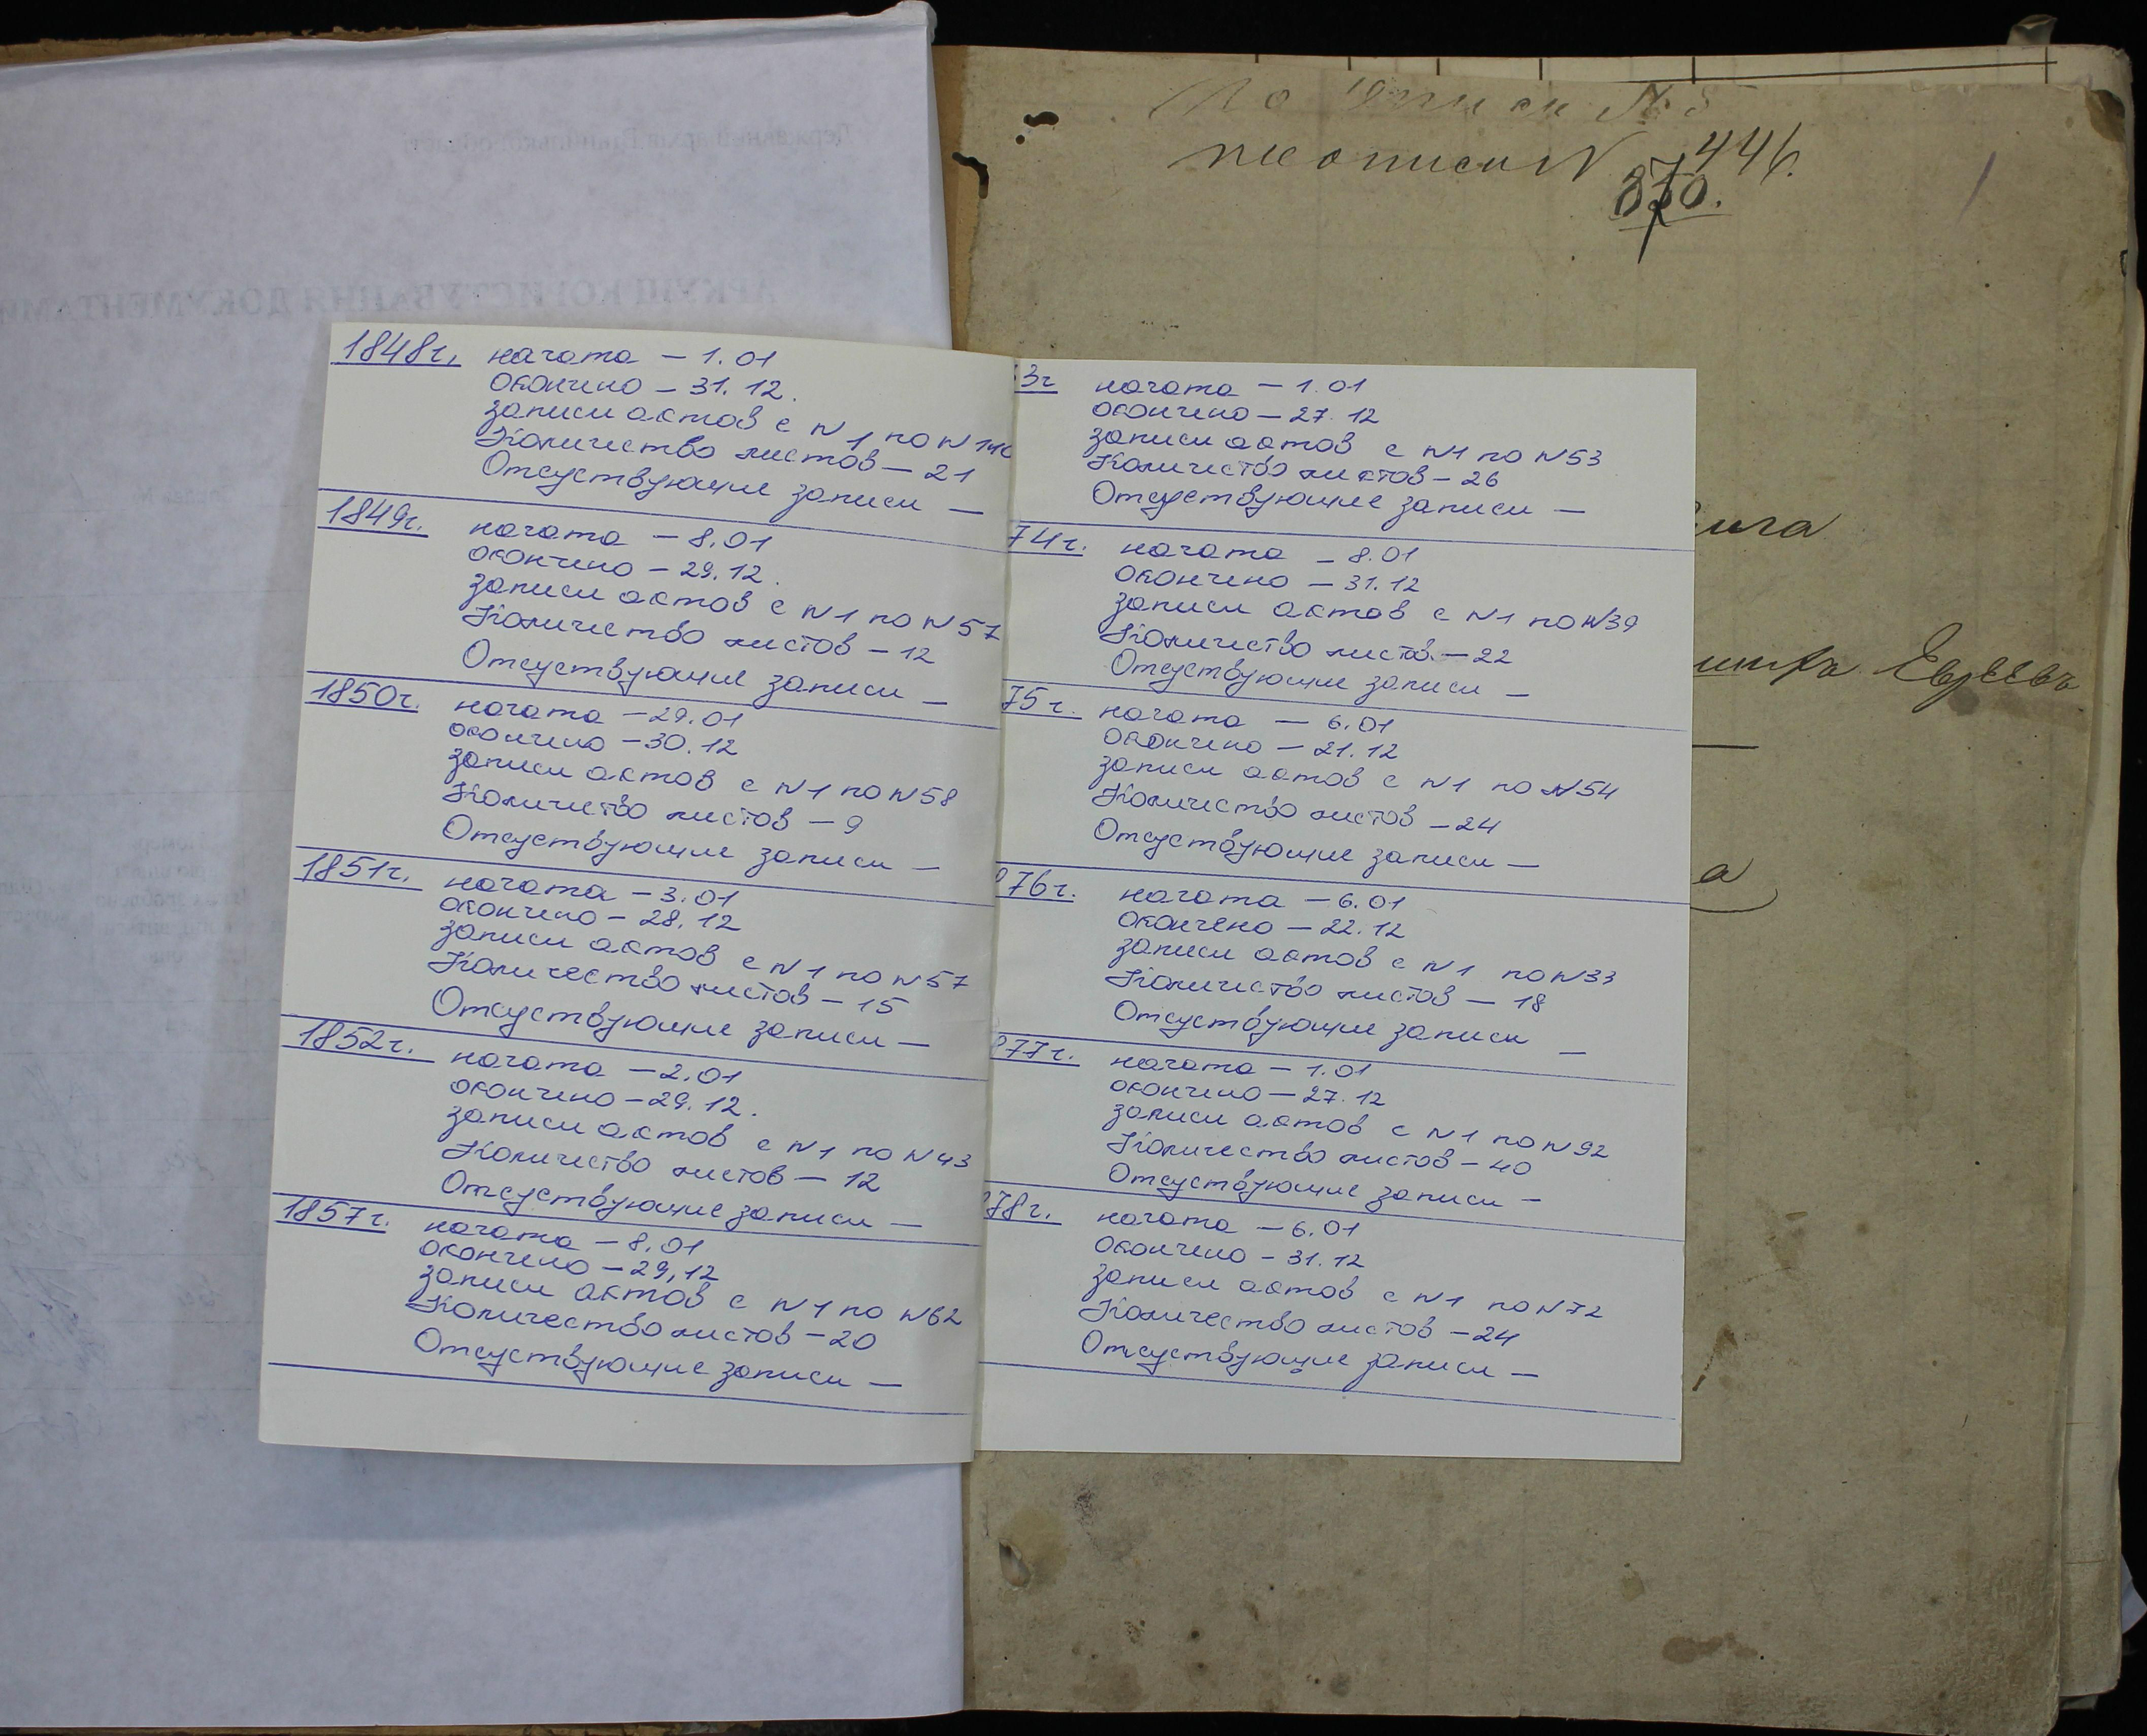 по описи N
446.
870.
1848г. начата — 1.01
окончено — 31.12.
записи актов с N 1 по N
Количество листов — 21
Отсуствующие записи —
1849г. начата — 8.01
окончено — 29.12.
записи актов с N 1 по N 57
Количество листов — 12
Отсуствующие записи —
1850г. начата — 29.01
окончено — 30.12
записи актов с N 1 по N 58
Количество листов — 9
Отсуствующие записи —
1851г. начата — 3.01
окончено — 28.12
записи актов с N 1 по N 57
Количество листов — 15
Отсуствующие записи —
1852г. начата — 2.01
окончено — 29.12.
записи актов с N 1 по N 43
Количество листов — 12
Отсуствующие записи —
1857г. начата — 8.01
окончено — 29,12
записи актов с N 1 по N 62
Количество листов — 20
Отсуствующие записи —
3г начата — 1.01
окончено — 27.12
записи актов с N1 по N53
Количество листов — 26
Отсуствующие записи —
74г. начата — 8.01
окончено — 31.12
записи актов с N1 по N39
Количество листов — 22
Отсуствующие записи —
75г. начата — 6.01
окончено — 21.12
записи актов с N1 по N54
Количество листов — 24
Отсуствующие записи —
876г. начата — 6.01
окончено — 22.12
записи актов с N1 по N33
Количество листов — 18
Отсуствующие записи —
877г. начата — 1.01
окончено — 27.12
записи актов с N1 по N92
Количество листов — 40
Отсуствующие записи —
878г. начата — 6.01
окончено — 31.12
записи актов с N1 по N72
Количество листов — 24
Отсуствующие записи —
Евреевъ